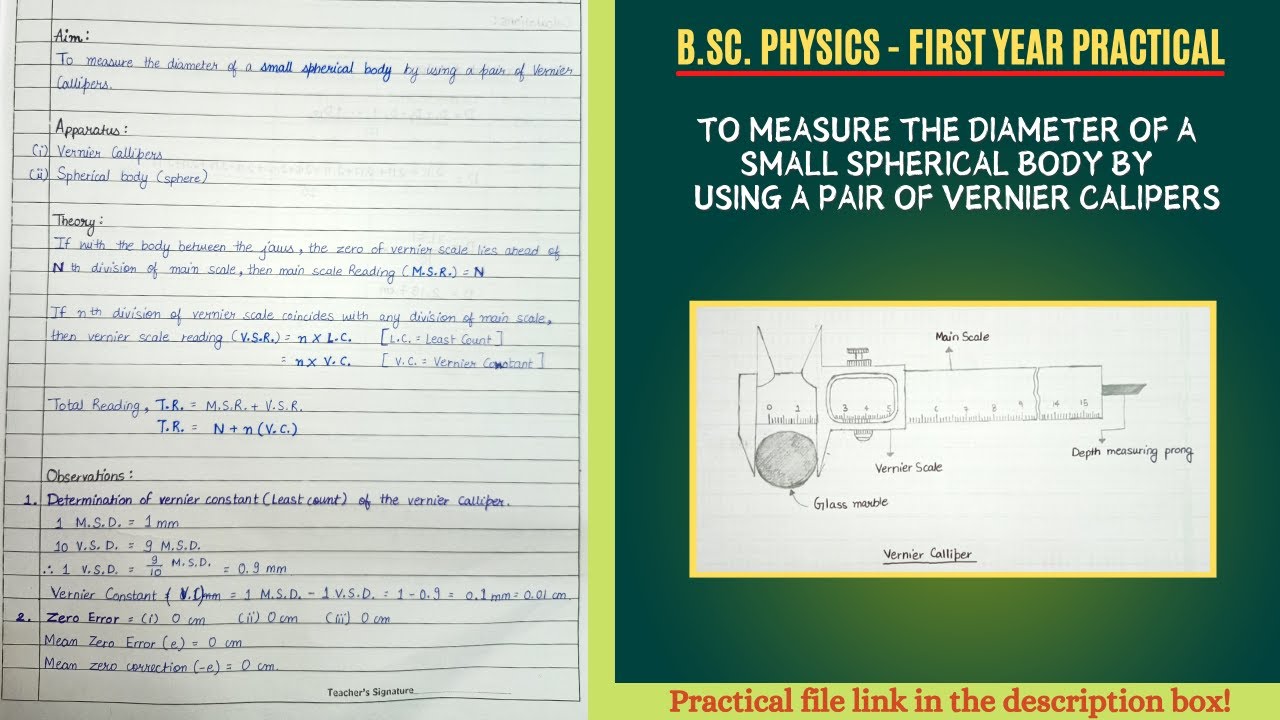 Aim:
To measure the diameter of a small spherical body by using a pair of Vernier
Callipers.
Apparatus:
(i) Vernier Callipers
(ii) Spherical body (sphere)
Theory:
If with the body between the jaws, the zero of vernier scale lies ahead of
Nth division of main scale, then main scale Reading (M.S.R.) = N
If nth division of vernier scale coincides with any division of main scale,
then vernier scale reading (V.S.R.) = n X L.C. [L.C. = Least Count]
= n X V.C. [V.C. = Vernier Constant]
Total Reading, T.R. = M.S.R. + V.S.R.
T.R. = N + n (V.C.)
Observations:
1. Determination of vernier constant (Least count) of the vernier calliper.
1 M.S.D. = 1 mm
10 V.S.D. = 9 M.S.D.
∴ 1 V.S.D. = 9/10 M.S.D. = 0.9 mm
Vernier Constant (V.C) mm = 1 M.S.D. - 1 V.S.D. = 1 - 0.9 = 0.1 mm = 0.01 cm
2. Zero Error = (i) 0 cm (ii) 0 cm (iii) 0 cm
Mean Zero Error (e) = 0 cm
Mean zero correction (-e) = 0 cm.
Teacher's Signature
B.SC. PHYSICS - FIRST YEAR PRACTICAL
TO MEASURE THE DIAMETER OF A
SMALL SPHERICAL BODY BY
USING A PAIR OF VERNIER CALIPERS
Main Scale
0 1 3 4 5 6 7 8 9 14 15
Depth measuring prong
Vernier Scale
Glass marble
Vernier Calliper
Practical file link in the description box!